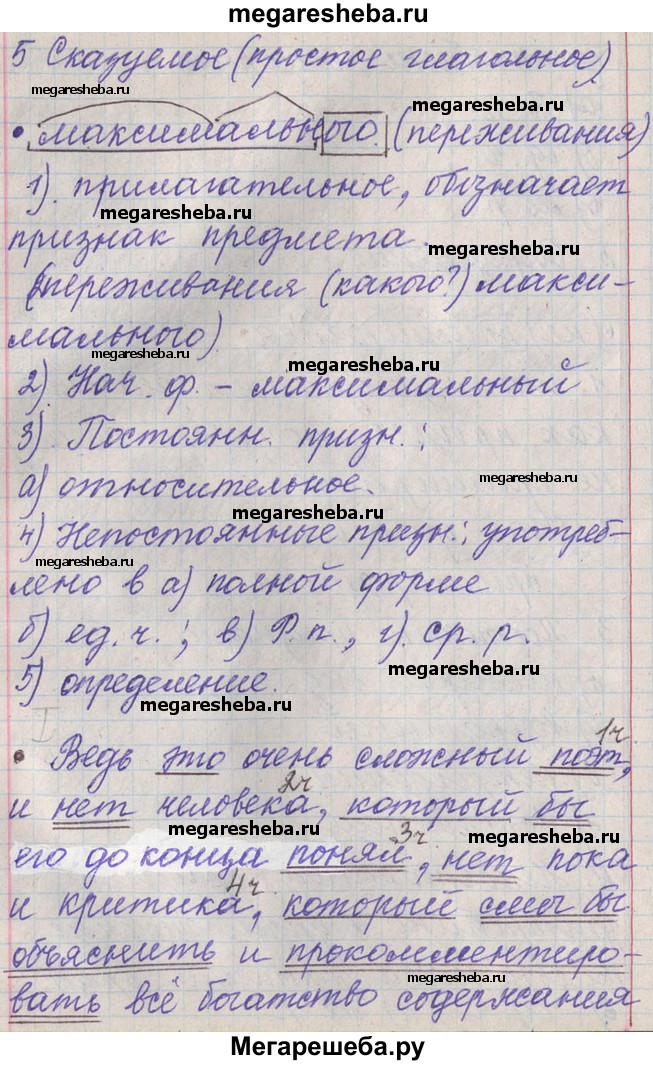 megaresheba.ru
5 Сказуемое (простое глагольное)
megaresheba.ru
megaresheba.ru
• максимального. (переживания)
1). прилагательное, обозначает
megaresheba.ru
признак предмета.
megaresheba.ru
(переживания (какого?) макси-
мального)
megaresheba.ru
megaresheba.ru
2) Нач. ф. – максимальный
3) Постоянн. призн.:
а) относительное.
megaresheba.ru
megaresheba.ru
4) Непостоянные призн.: употреб-
лено в а) полной форме
б) ед.ч.; в) Р.п., г). ср. р.
megaresheba.ru
5) определение.
megaresheba.ru
I
1ч
• Ведь это очень сложный поэт,
2ч
и нет человека, который бы
megaresheba.ru
3ч
megaresheba.ru
его до конца понял, нет пока
4ч
и критика, который смог бы
объяснить и прокомментиро-
megaresheba.ru
вать всё богатство содержания
Мегарешеба.ру